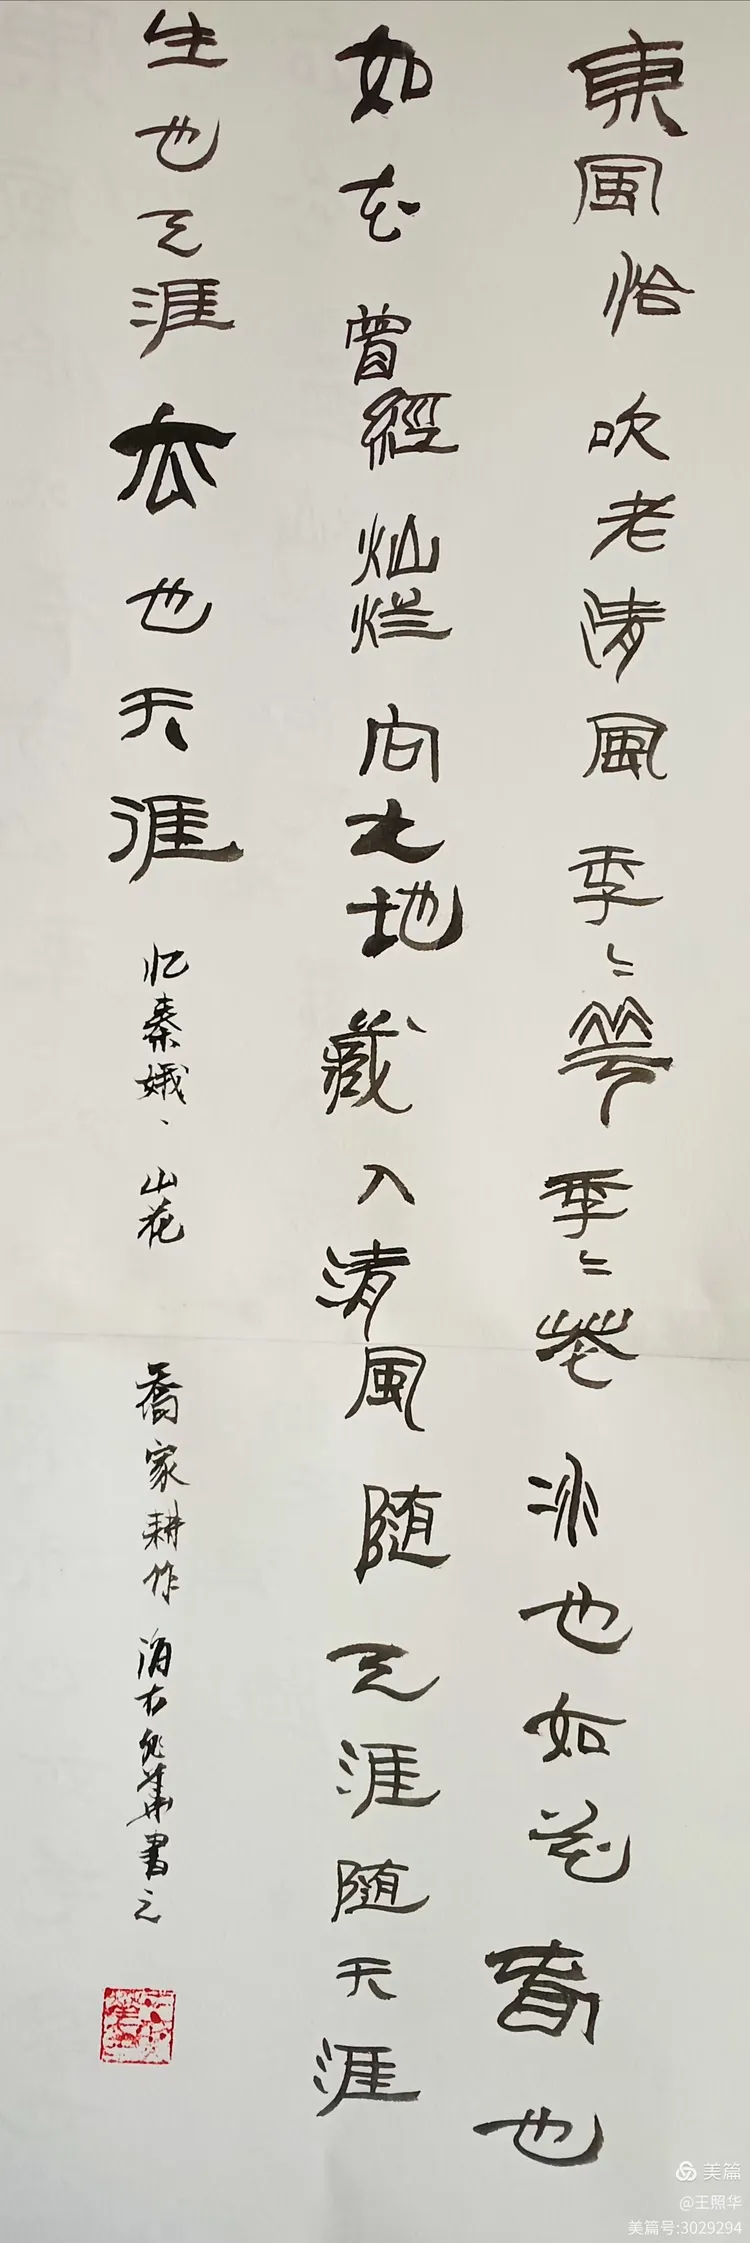 東風恰吹老清風季〻花季〻花冰也如花春也
如花曾經灿烂向大地藏入清風随天涯随天涯
生也天涯也天涯
忆秦娥、山花
喬家耕作書之
美篇
@王照华
美篇号:3029294